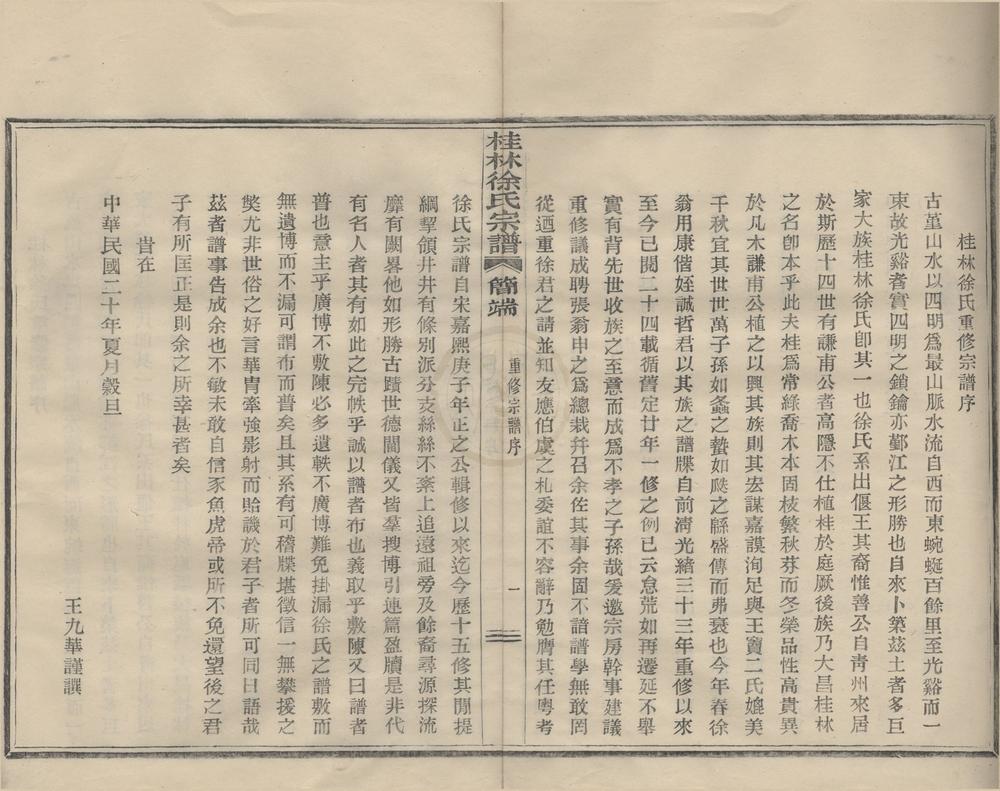 桂林徐氏重修宗譜序
古堇山水以四明爲最山脈水流自西而東蜿蜒百餘里至光谿而一
束故光谿者實四明之鎖鑰亦鄞江之形勝也自來卜築茲土者多巨
家大族桂林徐氏卽其一也徐氏系出偃王其裔惟善公自靑州來居
於斯歷十四世有謙甫公者高隱不仕植桂於庭厥後族乃大昌桂林
之名卽本乎此夫桂爲常綠喬木本固枝繁秋芬而冬榮品性高貴異
於凡木謙甫公植之以興其族則其宏謀嘉謨洵足與王竇二氏媲美
千秋宜其世世萬子孫如螽之蟄如瓞之緜盛傳而弗衰也今年春徐
翁用康偕姪誠哲君以其族之譜牒自前淸光緖三十三年重修以來
至今已閱二十四載循舊定廿年一修之例已云怠荒如再遷延不舉
實有背先世收族之至意而成爲不孝之子孫哉爰邀宗房幹事建議
重修議成聘張翁申之爲總栽幷召余佐其事余固不諳譜學無敢罔
從迺重徐君之請並知友應伯虞之札委誼不容辭乃勉膺其任粤考
桂林徐氏宗譜 簡端 重修宗譜序 一
徐氏宗譜自宋嘉熙庚子年正之公輯修以來迄今歷十五修其閒提
綱挈領井井有條別派分支絲絲不紊上追遠祖旁及餘裔尋源探流
靡有闕畧他如形勝古蹟世德閫儀又皆羣搜博引連篇盈牘是非代
有名人者其有如此之完帙乎誠以譜者布也義取乎敷陳又曰譜者
普也意主乎廣博不敷陳必多遺軼不廣博難免掛漏徐氏之譜敷而
無遺博而不漏可謂布而普矣且其系有可稽牒堪徵信一無攀援之
獘尤非世俗之好言華胄牽強影射而貽譏於君子者所可同日語哉
茲者譜事告成余也不敏未敢自信豕魚虎帝或所不免還望後之君
子有所匡正是則余之所幸甚者矣
旹在
中華民國二十年夏月穀旦
王九華謹譔